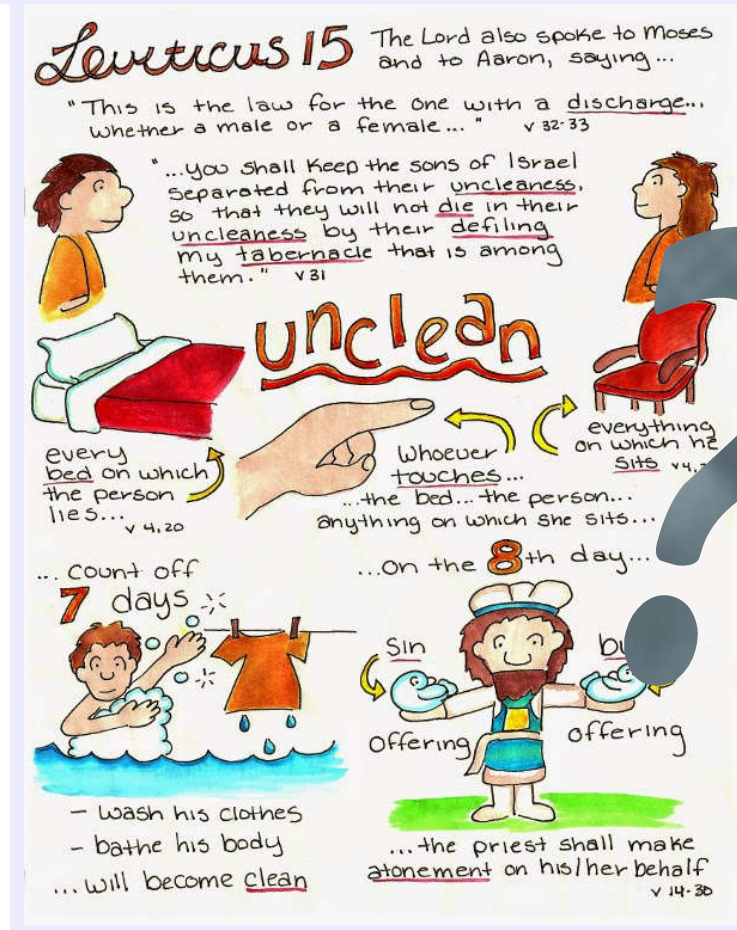 Leviticus 15
The Lord also spoke to Moses
and to Aaron, saying...
"This is the law for the one with a discharge...
whether a male or a female..." v 32-33
"...you shall keep the sons of Israel
separated from their uncleaness,
so that they will not die in their
uncleaness by their defiling
my tabernacle that is among
them." v31
unclean
every
bed on which
the person
lies...
v 4,20
Whoever
touches...
...the bed...the person...
anything on which she sits...
everything
on which he
sits v4,
... count off
7 days
- wash his clothes
- bathe his body
... will become clean
...on the 8th day...
Sin
offering
offering
...the priest shall make
atonement on his/her behalf
v 14-30
?